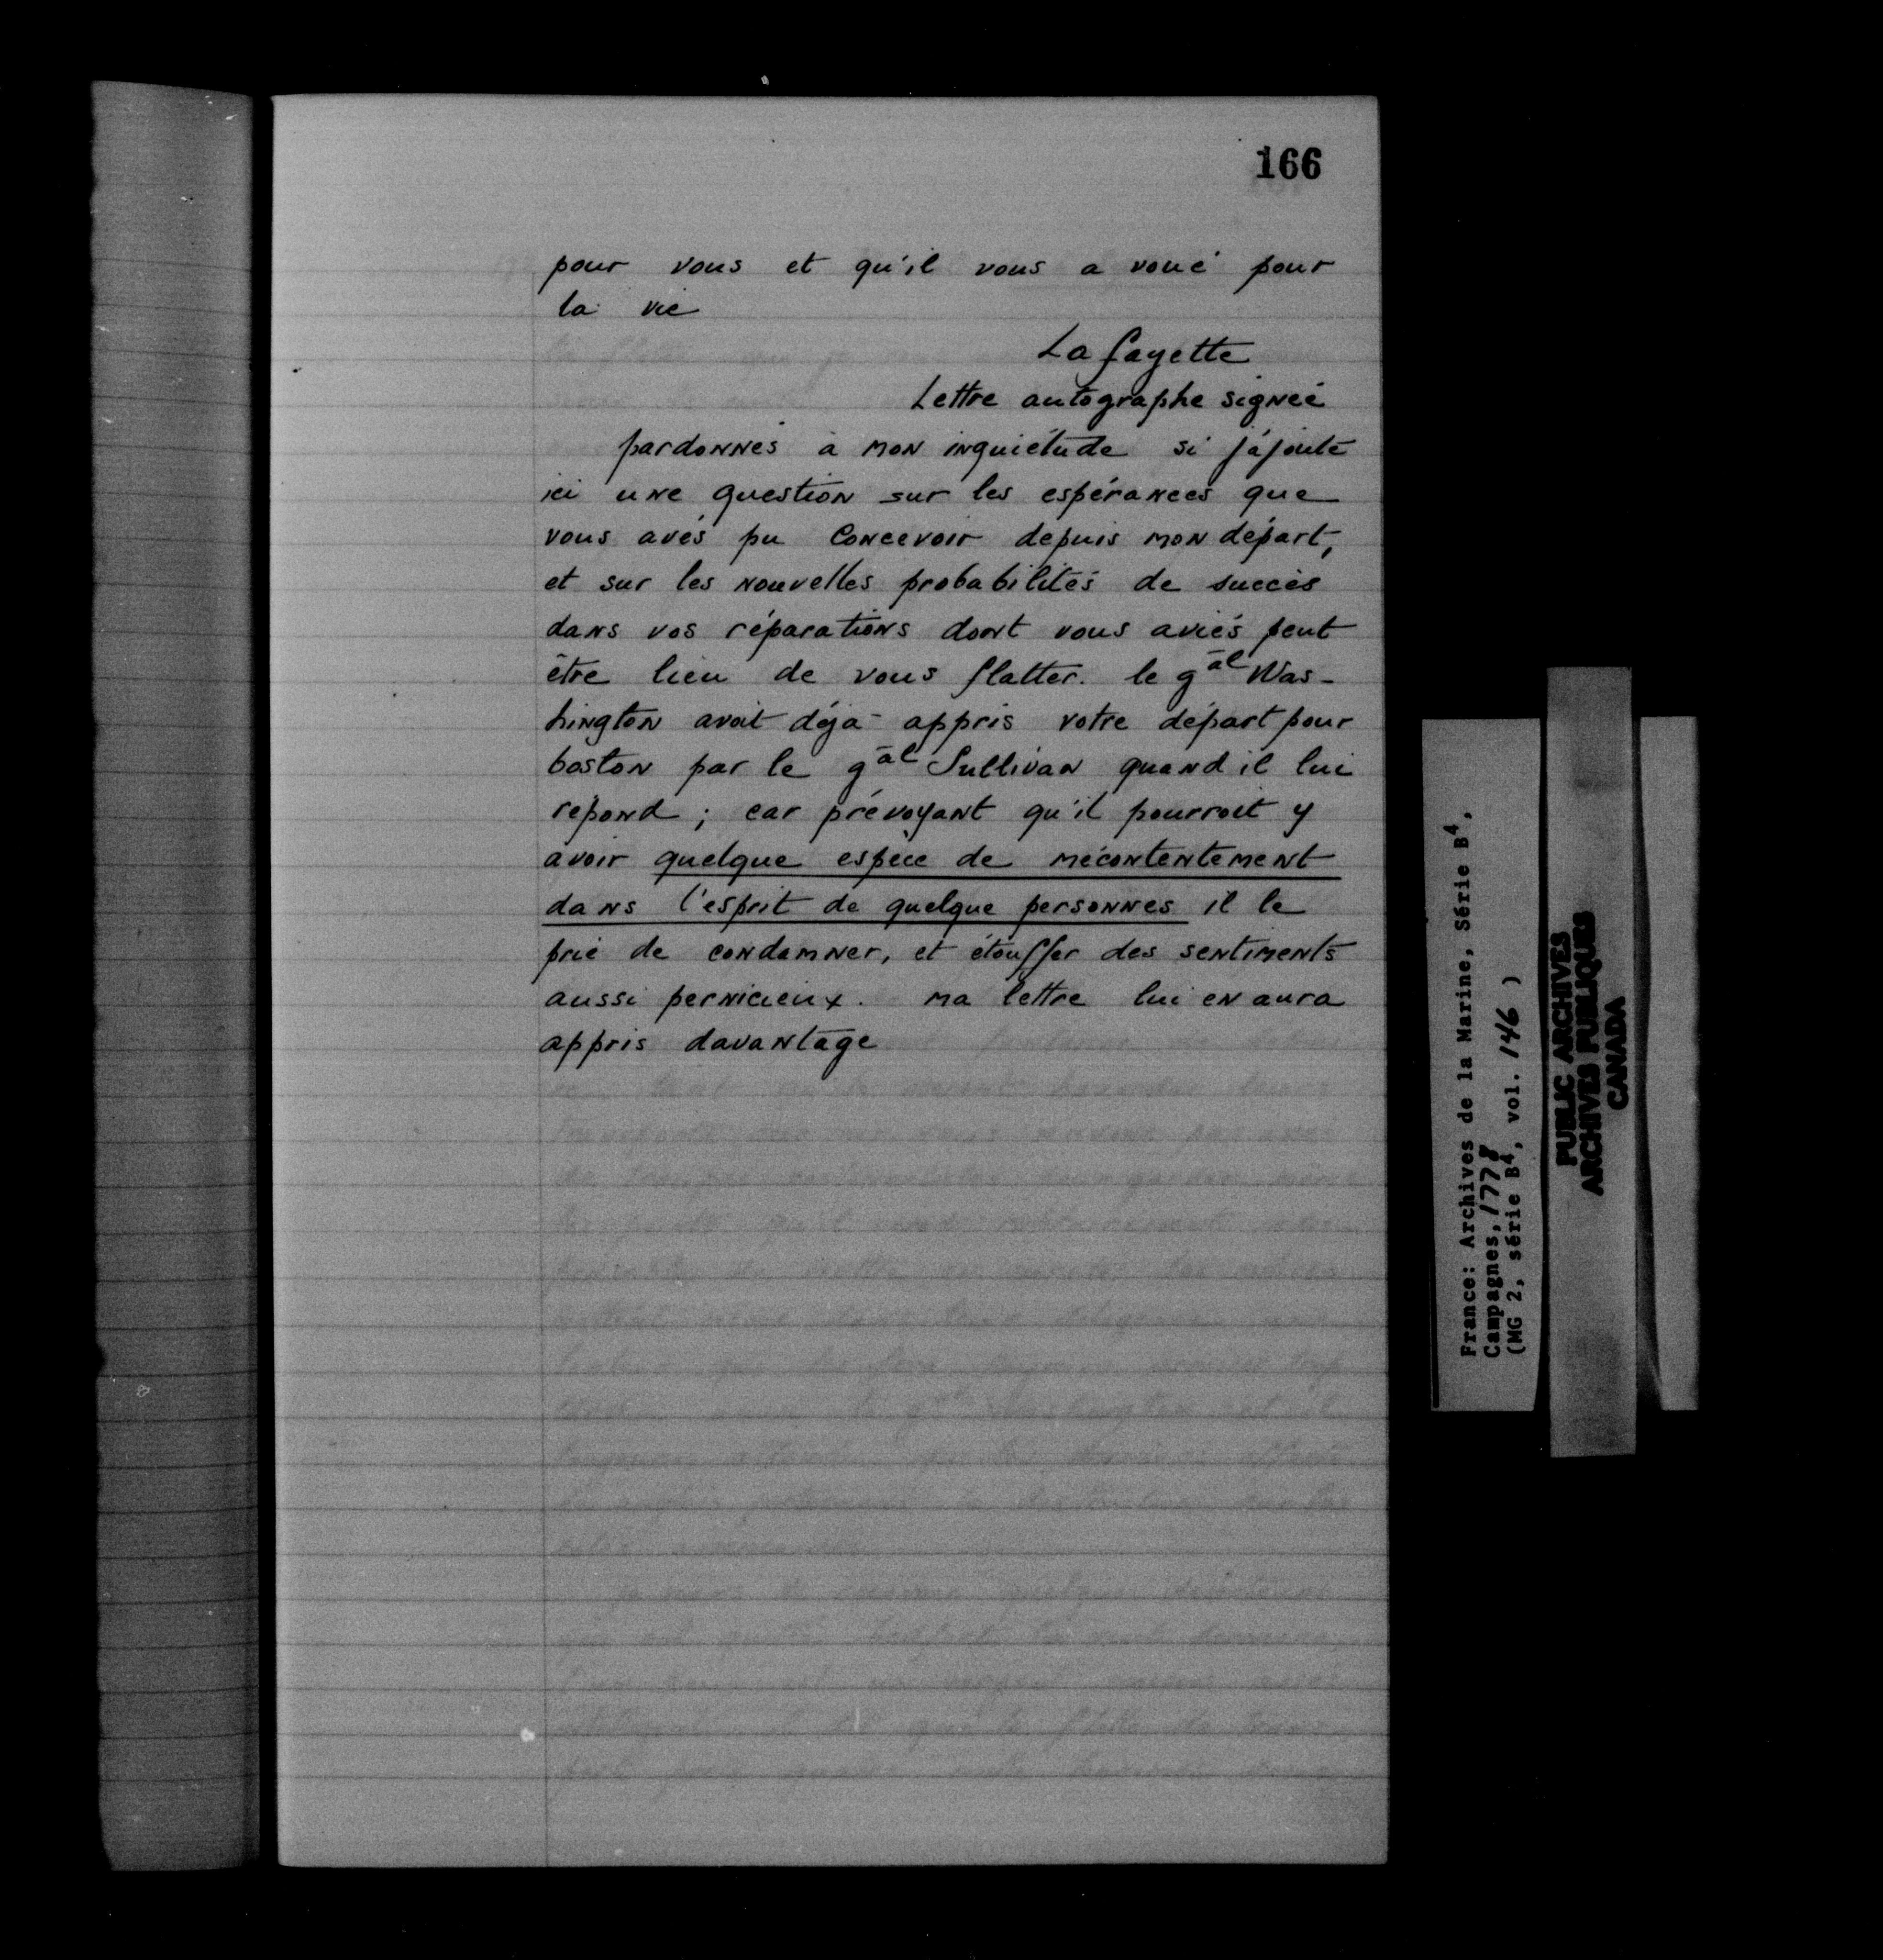 166
pour vous et qu'il vous a voué pour
la vie
La fayette
Lettre autographe signée
pardonnés à mon inquiétude si j'ajoute
ici une question sur les espérances que
vous avés pu concevoir depuis mon départ,
et sur les nouvelles probabilités de succès
dans vos réparations dont vous aviés peut
être lieu de vous flatter. le gāl Was-
hington avait déja appris votre départ pour
boston par le gāl Sullivan quand il lui
répond ; car prévoyant qu'il pourroit y
avoir quelque espèce de mécontentement
dans l'esprit de quelque personnes il le
prie de condamner, et étouffer des sentiments
aussi pernicieux. ma lettre lui en aura
appris davantage
France: Archives de la Marine, Série B4,
Campagnes, 1778
(MG 2, série B4, vol. 146 )
PUBLIC ARCHIVES
ARCHIVES PUBLIQUES
CANADA